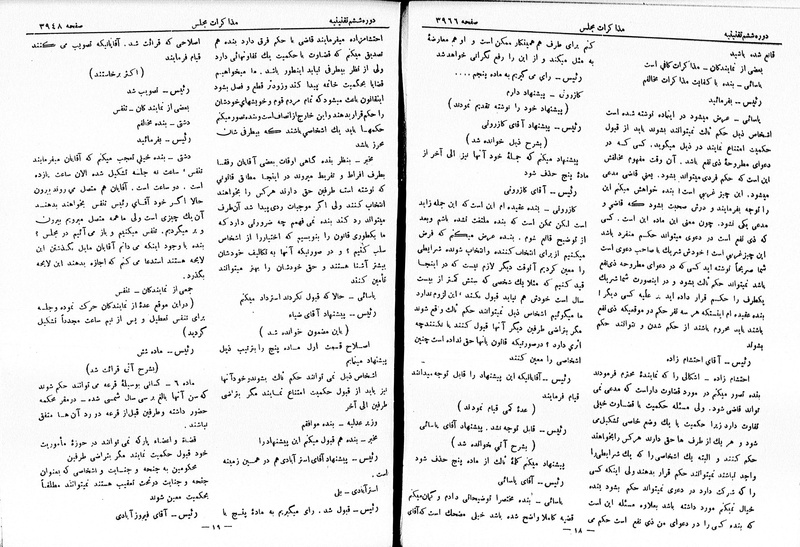 دوره ششم تقنینیه
مذاکرات مجلس
صفحه ۳۹۶۶
قانع شده باشید
بعضی از نمایندگان ـ مذاکرات کافی است
یاسائی ـ بنده با کفایت مذاکرات مخالفم
رئیس ـ بفرمائید
یاسائی ـ عرض میشود در اینماده نوشته شده است
اشخاص ذیل حکم ثالث نمیتوانند بشوند باید از قبول
حکمیت امتناع نمایند در ذیل میگوید. کسی که در
دعوای مطروحه ذی نفع باشد. آن وقت مفهوم مخالفش
این است که حکم فردی میتواند بشود. یعنی قاضی مدعی
میشود. این چیز غریبی است! بنده خواهش میکنم این
را توجه بفرمایند و درش صحبت بشود که قاضی و
مدعی یکی نشود. چون معنی این ماده این است. کسی
که ذی نفع است در دعوی میتواند حکم منفرد باشد
این چیز غریبی است! خودش شریک با صاحب دعوی است
شما صریحاً نوشته اید کسی که در دعوای مطروحه ذی نفع
باشد نمیتواند حکم ثالث بشود و در اینصورت شما شریک
یکطرف را حکم قرار داده اید. علیه کسی دیگر!
بنده عقیده ام اینستکه هر سه نفر حکم در موقعیکه ذی نفع
باشند باید محروم باشند از حکم شدن و نتوانند حکم
بشوند
رئیس ـ آقای احتشام زاده
احتشام زاده ـ اشکالی را که نماینده محترم فرمودند
بنده تصور میکنم در مورد قضاوت وارد است که مدعی نمی
تواند قاضی شود. ولی مسئله حکمیت با قضاوت خیلی
تفاوت دارد زیرا حکمیت با یک وضع خاصی تشکیل می
شود و هر یک از طرف ها حق دارند هر کس را بخواهند
حکم کنند و البته یک اشخاصی را که یک شرایطی را
واجد نباشند نمیتوانند حکم قرار بدهند ولی اینکه کسی
را که شرکت دارد در دعوی نمیتواند حکم بشود بنده
خیال نمیکنم مورد داشته باشد بعلاوه مسئله این است
که بنده کسی را در دعوای من ذی نفع است حکم می
کنم برای طرف هم همینکار ممکن است و او هم معارضه
به مثل میکند و از این راه رفع نگرانی خواهد شد
رئیس ـ رای می گیریم به ماده پنجم ....
کازرونی ـ پیشنهاد دارم
(پیشنهاد خود را نوشته تقدیم نمودند)
رئیس ـ پیشنهاد آقای کازرونی
(بشرح ذیل خوانده شد)
پیشنهاد میکنم که جملهٔ خود آنها نیز الی آخر از
ماده پنج حذف شود
رئیس ـ آقای کازرونی
کازرونی ـ بنده عقیده ام این است که این جمله زاید
است لکن ممکن است که بنده ملتفت نشده باشم وبعد
از توضیح قانع شوم. بنده عرض میکنم که فرض
میکنیم از برای انتخاب کننده و انتخاب شونده شرایطی
را معین کردیم آنوقت دیگر لازم نیست که در اینجا
قید کنیم که مثلا یک شخصی که سنش کمتر از بیست
سال است خودش هم نباید قبول بکند؛ این لزوم ندارد
ما میگوئیم اشخاص ذیل نمیتوانند حکم ثالث واقع شوند
مگر بتراضی طرفین دیگر آنها قبول کنند یا نکنند چه
اثری دارد؟ در صورتیکه قانون باینها حق نداده است چنین
اشخاصی را معین کنند
رئیس ـ آقایانیکه این پیشنهاد را قابل توجه میدانند
قیام فرمایند
(عدهٔ کمی قیام نمودند)
رئیس ـ قابل توجه نشد. پیشنهاد آقای یاسائی
(بشرح آتی خوانده شد)
پیشنهاد میکنم کلمهٔ ثالث از ماده پنج حذف شود
رئیس ـ آقای یاسائی
یاسائی ـ بنده مختصراً توضیحاتی دادم و گمان میکنم
قضیه کاملا واضح شده باشد خیلی مضحک است که آقای
ـ ۱۸ ـ
دوره ششم تقنینیه
مذاکرات مجلس
صفحه ۳۹۴۸
احتشام زاده میفرمایند قاضی با حکم فرق دارد بنده هم
تصدیق میکنم که قضاوت با حکمیت یک تفاوتهائی دارد
ولی از نظر بیطرفی نباید اینطور باشد. ما میخواهیم
قضایا بحکمیت خاتمه پیدا کند وزودتر قطع و فصل بشود
اینقانون باعث میشود که تمام مردم قوم و خویشهای خودشان
را حکم قرار بدهند و این خارج از انصاف است و بنده تصور میکنم
حکمها باید یک اشخاصی باشند که بیطرفی شان
محرز باشد
مخبر ـ بنظر بنده گاهی اوقات بعضی آقایان رفقا
بطرف افراط و تفریط میروند در اینجا مطابق قانونی
که نوشته است طرفین حق دارند هر کس را بخواهند
انتخاب کنند ولی اگر موجبات ردی پیدا شد آن طرف
میتواند رد کند بنده نمی فهمم چه ضرورتی دارد که
ما یکطوری قانون را بنویسیم که اختیار را از اشخاص
سلب کنیم؟ و در صورتیکه آنها به تکالیف خودشان
بیشتر آشنا هستند و حق خودشان را بهتر میتوانند
تأمین کنند
یاسائی ـ حالا که قبول نکردند استرداد میکنم
رئیس ـ پیشنهاد آقای ضیاء
(باین مضمون خوانده شد)
اصلاح قسمت اول ماده پنج را بترتیب ذیل
پیشنهاد مینمایم
اشخاص ذیل نمی توانند حکم ثالث بشوند و خود آنها
نیز باید از قبول حکمیت امتناع نمایند مگر بتراضی
طرفین الی آخر
وزیر عدلیه ـ بنده موافقم
مخبر ـ بنده هم قبول میکنم این پیشنهاد را
رئیس ـ پیشنهاد آقای استرآبادی هم در همین زمینه
است.
استرآبادی ـ بلی
رئیس ـ قبول شد. رأی میگیریم به مادهٔ پنج با
اصلاحی که قرائت شد. آقایانیکه تصویب می کنند
قیام فرمایند
(اکثر برخاستند)
رئیس ـ تصویب شد
بعضی از نمایندگان ـ تنفس
دشتی ـ بنده مخالفم
رئیس ـ بفرمائید
دشتی ـ بنده خیلی تعجب میکنم که آقایان میفرمایند
تنفس؛ ساعت نه جلسه تشکیل شده الان ساعت یازده
است. دو ساعت است. آقایان هم متصل می روند بیرون
حالا اگر خود آقای رئیس تنفس بخواهند بدهند
آن یک چیزی است ولی ما همه متصل میرویم بیرون
و بر میگردیم. تنفس میکنیم و باز می آئیم در مجلس؟
بنده با وجود اینکه می دانم آقایان مایل بگذشتن این
لایحه هستند استدعا می کنم که اجازه بدهند این لایحه
بگذرد.
جمعی از نمایندگان ـ تنفس
(در این موقع عدهٔ از نمایندگان حرکت نموده و جلسه
برای تنفس تعطیل و پس از نیم ساعت مجدداً تشکیل
گردید)
رئیس ـ ماده شش
(بشرح آتی قرائت شد)
ماده ۶ ـ کسانی بوسیلهٔ قرعه می توانند حکم شوند
که سن آنها بالغ بر سی سال شمسی شده ـ در مقر محکمه
حضور داشته وطرفین قبل از قرعه در رد آن ها متفق
نباشند.
قضات و اعضاء پارکه نمی توانند در حوزهٔ مأموریت
خود قبول حکمیت نمایند مگر بتراضی طرفین
محکومین به جنحه و جنایت و اشخاصی که بعنوان
جنحه و جنایت در تحت تعقیب هستند نمیتوانند مطلقاً
بحکمیت معین شوند
رئیس ـ آقای فیروزآبادی
ـ ۱۹ ـ